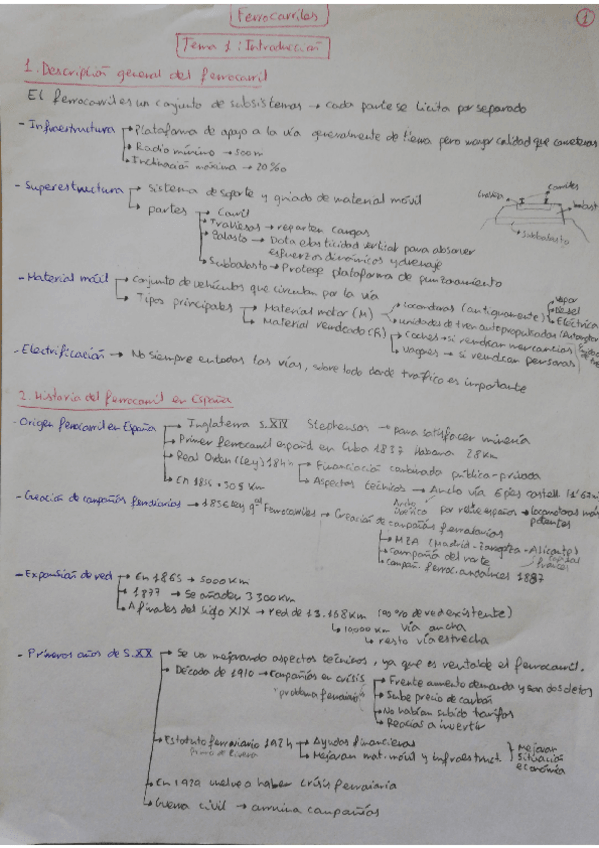 Ferrocarriles
1
Tema 1: Introducción
1. Descripción general del ferrocarril
El ferrocarril es un conjunto de subsistemas → cada parte se licita por separado
- Infraestructura → Plataforma de apoyo a la vía generalmente de tierra pero mayor calidad que carreteras
→ Radio mínimo → 500m
→ Inclinación máxima → 20‰
- Superestructura → Sistema de soporte y guiado de material móvil
→ partes → Carril
→ Traviesas → reparten cargas
→ Balasto → Dota elasticidad vertical para absorver
esfuerzos dinámicos y drenaje
→ Subbalasto → Protege plataforma de punzonamiento
traviesa
carriles
balast
subbalasto
- Material móvil → Conjunto de vehículos que circulan por la vía
→ Tipos principales → Material motor (M) → locomotoras (antiguamente) → Vapor
→ Diesel
→ Eléctrica
→ unidades de tren autopropulsadas/Automotor
→ Material remolcado (R) → Coches → si remolcan mercancías
→ Vagones → si remolcan personas
- Electrificación → No siempre en todas las vías, sobre todo donde tráfico es importante
2. Historia del ferrocarril en España
- Origen ferrocarril en España → Inglaterra s.XIX Stephenson → para satisfacer minería
→ Primer ferrocarril español en Cuba 1837 Habana 28km
→ Real Orden (Ley) 1844 → Financiación combinada pública-privada
→ Aspectos técnicos → Ancho vía 6 pies castell.
Ancho ibérico
por relieve español → locomotoras más potentes
→ En 1856 · 308 km
- Creación de compañías ferroviarias → 1856 Ley gral Ferrocarriles → Creación de compañías ferroviarias
→ MZA (Madrid-Zaragoza-Alicante)
→ Compañía del norte
capital francés
→ Compañ. ferroc. andaluces 1887
- Expansión de red → En 1865 → 5000 km
→ 1877 → Se añaden 3300 km
→ A finales del siglo XIX → red de 13.168 km (90% de red existente)
→ 10,000 km vía ancha
→ resto vía estrecha
- Primeros años de S.XX → Se va mejorando aspectos técnicos, ya que es rentable el ferrocarril.
→ Década de 1910 → Compañías en crisis
"problema ferroviario"
→ Frente aumento demanda y son obsoletos
→ Sube precio de carbón
→ No habían subido tarifas
→ Reacias a invertir
→ Estatuto ferroviario 1924 → Ayudas financieras
Primo de Rivera
→ Mejoran mat. móvil y infraestruct.
Mejoran situación económica
→ En 1929 vuelve a haber crisis ferroviaria
→ Guerra civil → arruina compañías